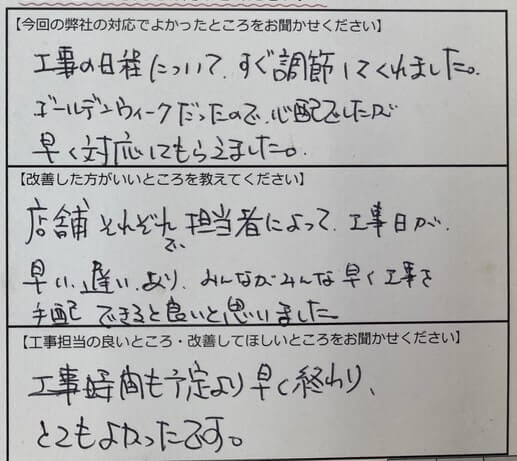 【今回の弊社の対応でよかったところをお聞かせください】
工事の日程について、すぐ調節してくれました。
ゴールデンウィークだったので、心配でしたが
早く対応してもらえました。
【改善した方がいいところを教えてください】
店舗それぞれで担当者によって、工事日が、
早い、遅い、より、みんながみんな早く工事を
手配できると良いと思いました
【工事担当の良いところ・改善してほしいところをお聞かせください】
工事時間も予定より早く終わり、
とてもよかったです。